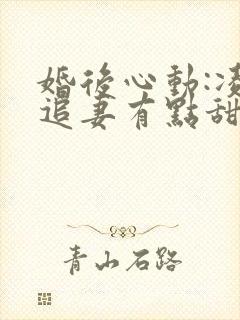 婚後心動:凌
追妻有點甜
青山石路